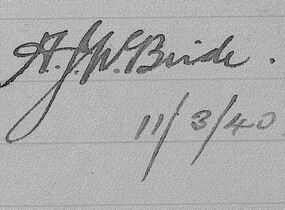 H. J. McBride.
11/3/40